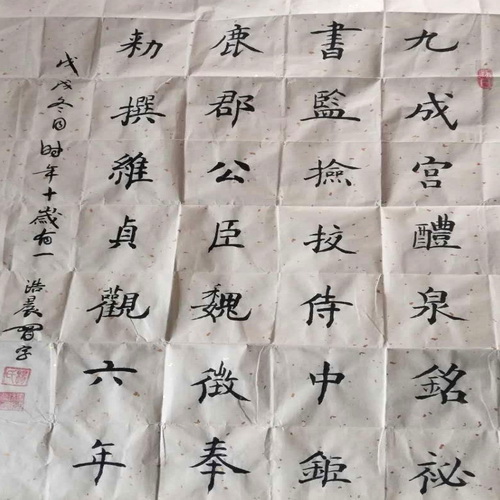 九成宫醴泉銘祕
書監撿挍侍中鉅
鹿郡公臣魏徵奉
勑撰維貞觀六年
戊戌冬日时年十歲有一 浩晨習字